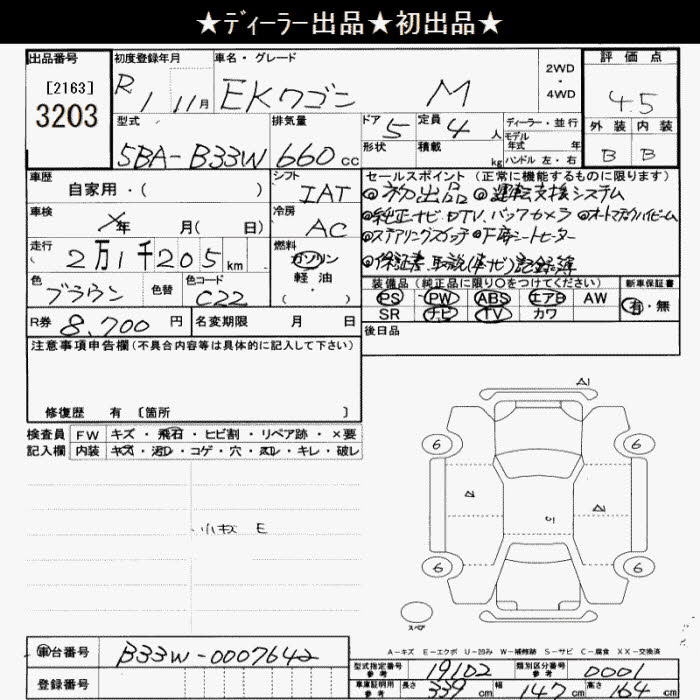 ★ディーラー出品★初出品★
出品番号 初度登録年月 車名・グレード 2WD・4WD 評価点
[2163]
3203
R 1 11月 EKワゴン M 4.5
型式 排気量 ドア 5 定員 4 人 ディーラー・並行 外装 内装
5BA-B33W 660cc 形状 積載 kg モデル年式 年 ハンドル 左・右 B B
車歴 シフト セールスポイント (正常に機能するものに限ります)
自家用・( ) IAT ◎初出品 ◎運転支援システム
車検 年 月( 日) 冷房 AC ◎純正ナビ DTV.バックカメラ ◎オートマチックハイビーム
走行 燃料 ◎ステアリングスイッチ ◎F席シートヒーター
2万1千205km ガソリン ◎保証書 取説(車・ナビ)記録簿
軽油・( )
色 色替 色コード 装備品 (純正品に限り○をつけてください) 新車保証書
ブラウン C22 PS PW ABS エアB AW 有・無
SR ナビ TV カワ
R券 8,700円 名変期限 月 日 後日品
注意事項申告欄 (不具合内容等は具体的に記入して下さい)
修復歴 有 〔箇所 〕
検査員 FW キズ・飛石・ヒビ割・リペア跡・×要
記入欄 内装 キズ・汚レ・コゲ・穴・スレ・キレ・破レ
A1
6 6
小キズ E
6 6
スペア
A-キズ E-エクボ U-凹み W-補修跡 S-サビ C-腐食 XX-交換済
車台番号 B33W-0007642
登録番号
型式指定番号 参考 19102 類別区分番号 参考 0001
車庫証明用 参考 長さ 339cm 幅 147cm 高さ 164cm